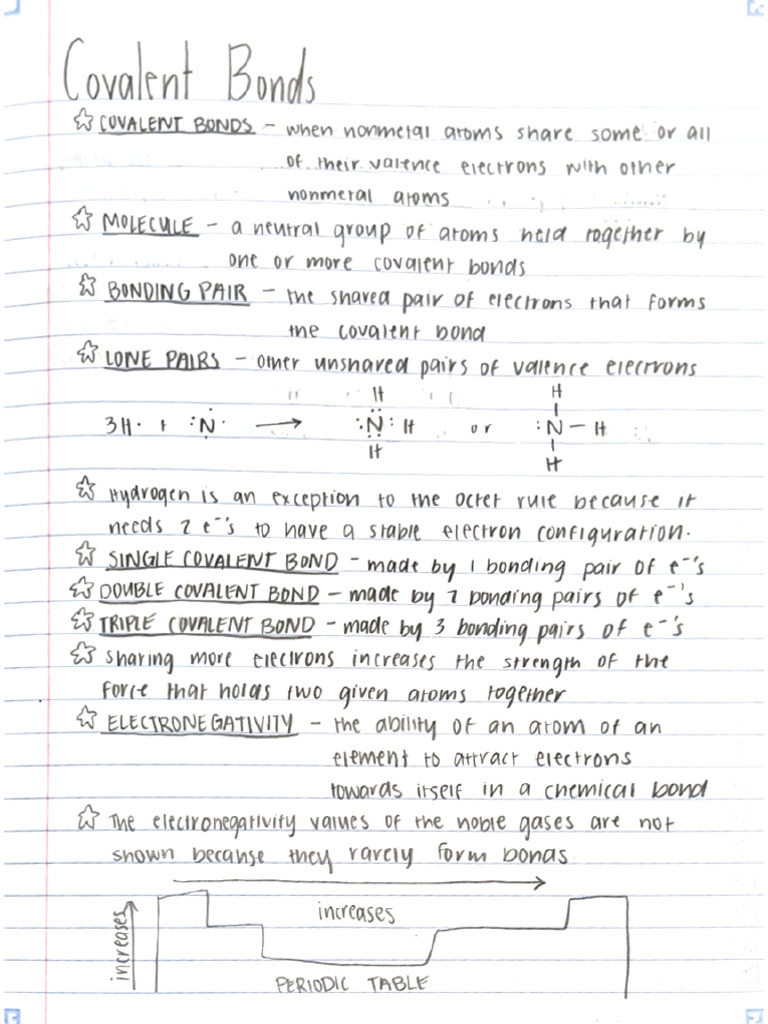 Covalent Bonds
☆ COVALENT BONDS - when nonmetal atoms share some or all
of their valence electrons with other
nonmetal atoms
☆ MOLECULE - a neutral group of atoms held together by
one or more covalent bonds
☆ BONDING PAIR - the shared pair of electrons that forms
the covalent bond
☆ LONE PAIRS - other unshared pairs of valence electrons
H H
3H· + :N· → :N: H or :N - H
H H
☆ Hydrogen is an exception to the octet rule because it
needs 2 e⁻'s to have a stable electron configuration.
☆ SINGLE COVALENT BOND - made by 1 bonding pair of e⁻'s
☆ DOUBLE COVALENT BOND - made by 2 bonding pairs of e⁻'s
☆ TRIPLE COVALENT BOND - made by 3 bonding pairs of e⁻'s
☆ Sharing more electrons increases the strength of the
force that holds two given atoms together
☆ ELECTRONEGATIVITY - the ability of an atom of an
element to attract electrons
towards itself in a chemical bond
☆ The electronegativity values of the noble gases are not
shown because they rarely form bonds
increases
increases
PERIODIC TABLE